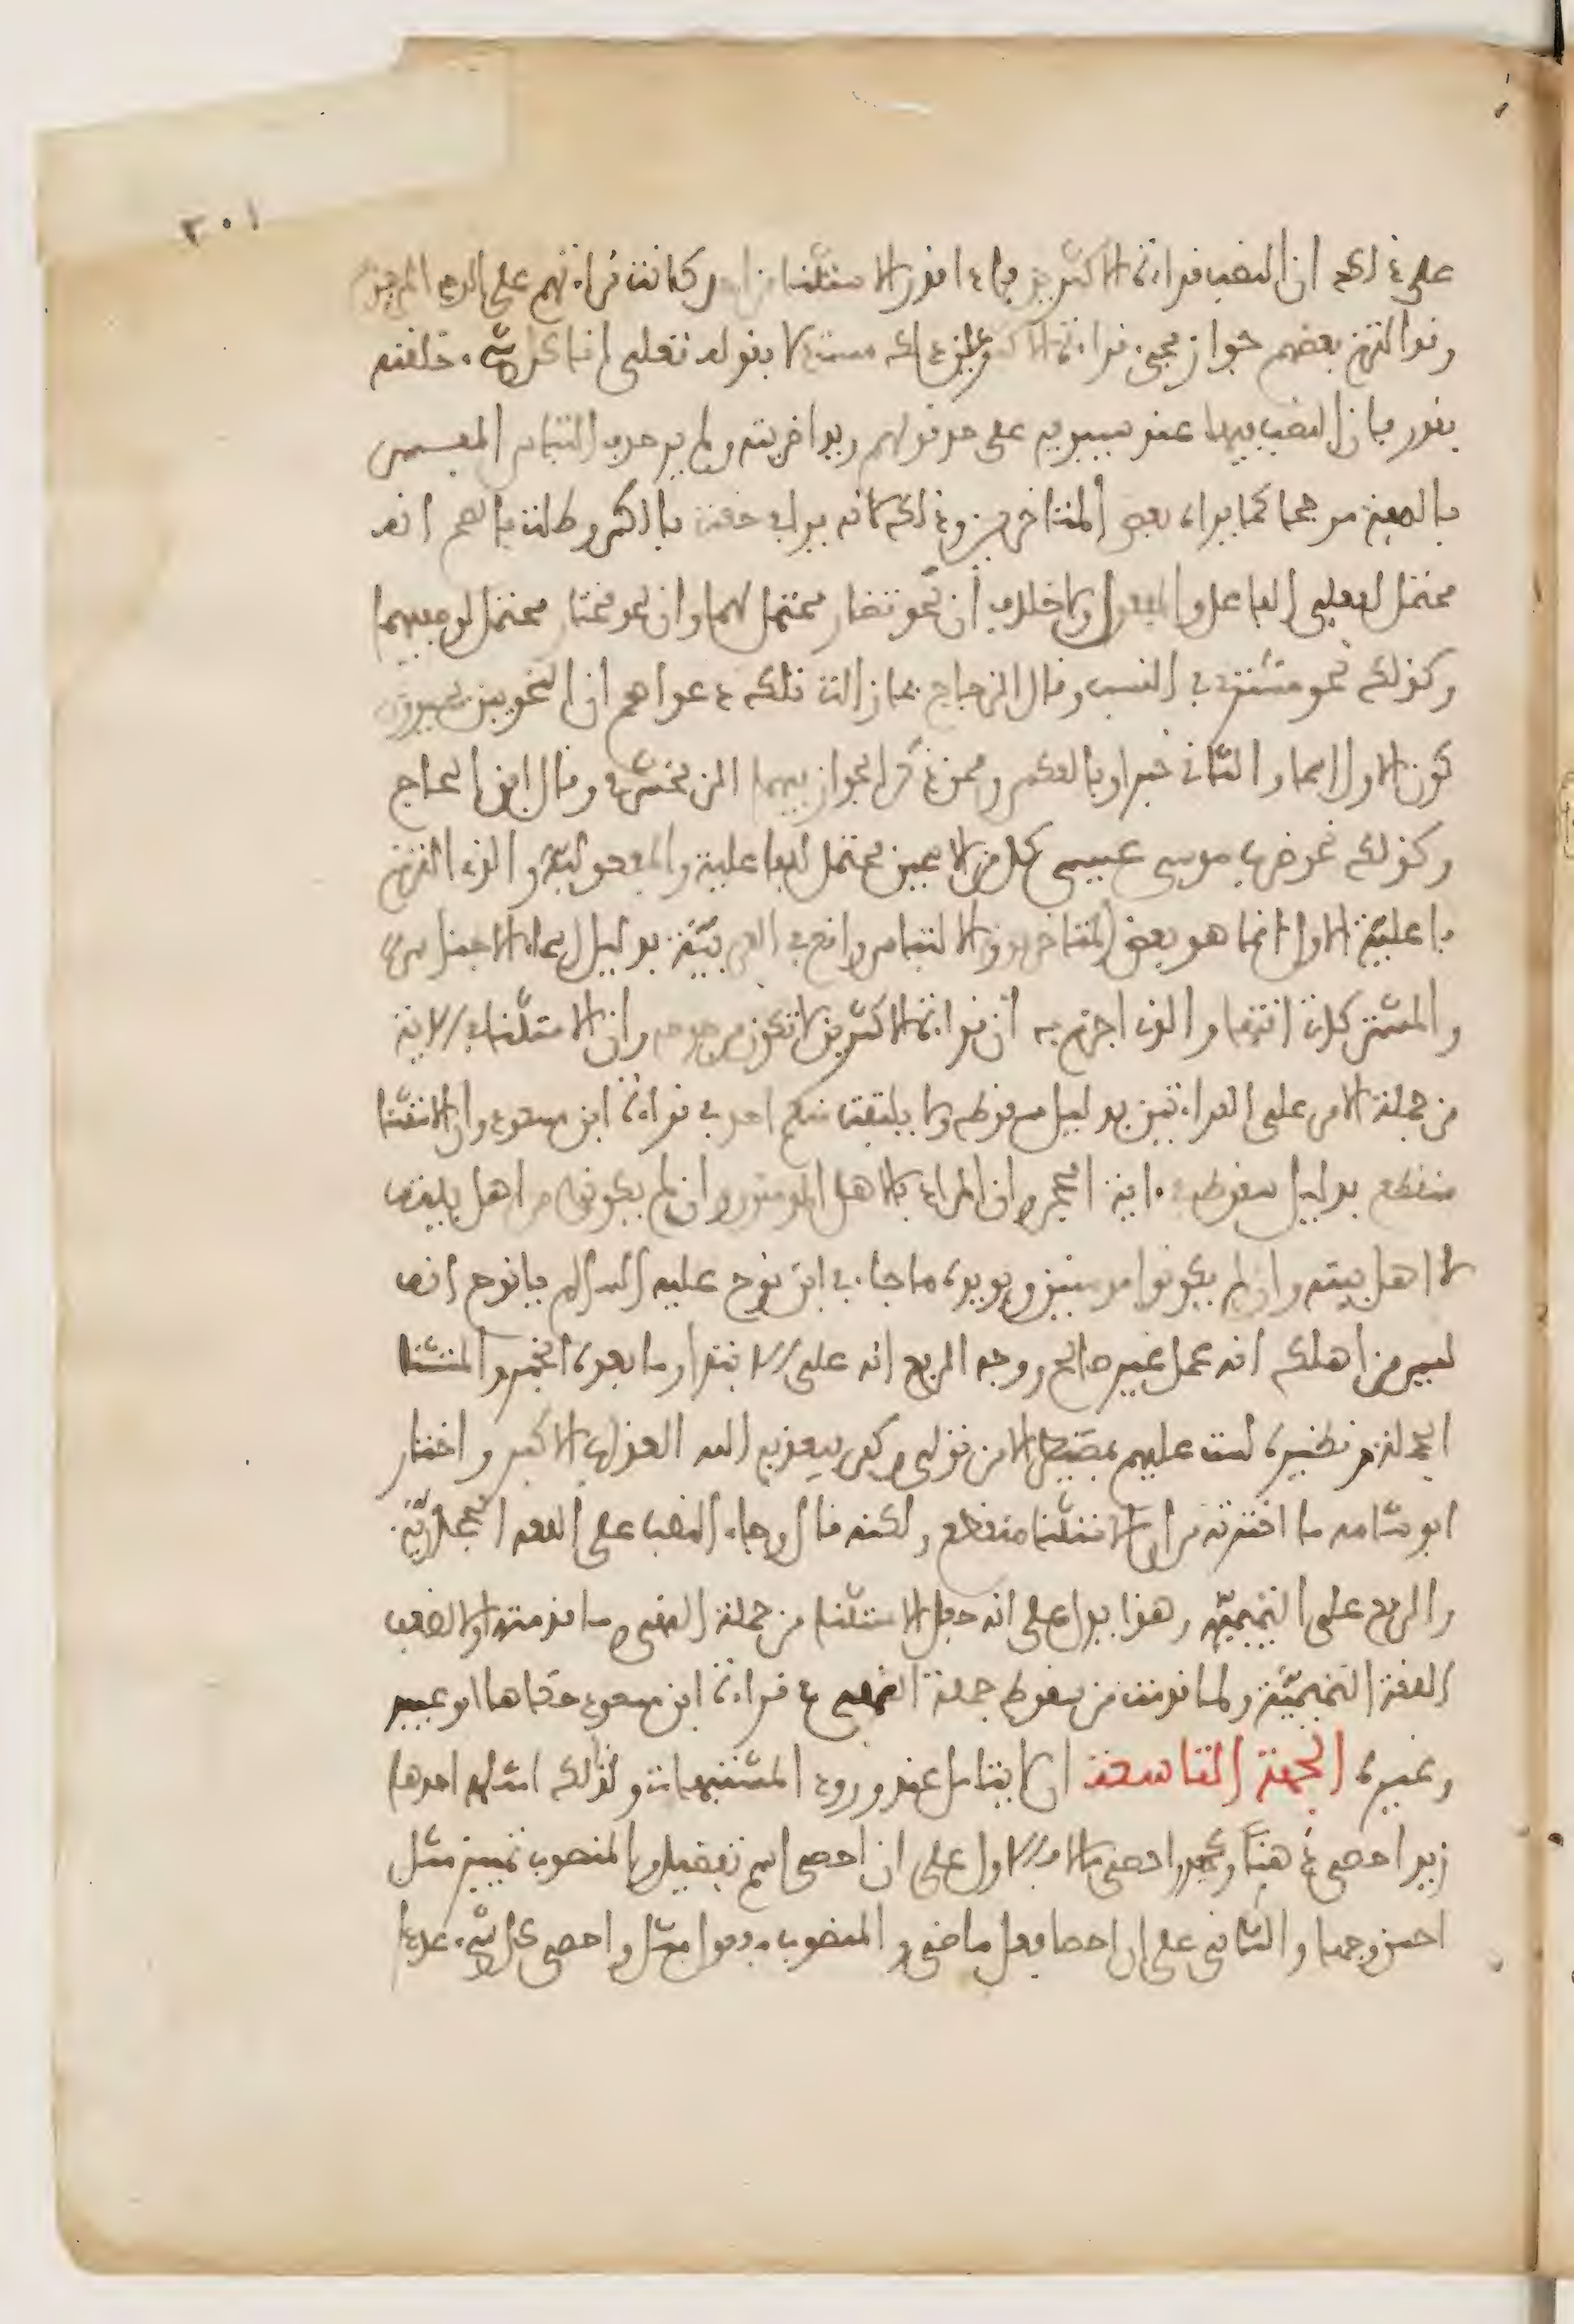 ٢٠١
على ذلك ان النصب قراءة الاكثرين فاذا قدر الاستثناء من احد كانت قراءتهم على الوجه المرجوح
وقد التزم بعضهم جواز مجيء قراءة الاكثر على ذلك مستدلا بقوله تعلى انا كل شيء خلقنه
بقدر فان النصب فيها عند سيبويه على حد قولهم زيدا ضربته ولم ير خوف التباس المفسر
بالصفة مرجحا كما يراه بعض المتاخرين وذلك لانه يرى في خفت بالكسر وطلت بالضم انه
محتمل لفعلي الفاعل والمفعول ولا خلاف ان نحو تضار محتمل لهما وان نحو مختار محتمل لوصفيهما
وكذلك نحو مشتري في النسب وقال الزجاج فما زالت تلك دعواهم ان النحويين يجيزون
كون الاول اسما والثاني خبرا وبالعكس وممن ذكر الجواز فيهما الزمخشري وقال ابن الحاج
وكذلك نحو ضرب موسى عيسى كل من الاسمين محتمل للفاعلية والمفعولية والذي التزم
فاعلية الاول انما هو بعض المتاخرين والالتباس واقع في العربية بدليل اسماء الاجناس
والمشتركات انتهى والذي اجزم به ان قراءة الاكثرين لا تكون مرجوحة وان الاستثناء في الاية
من جملة الامر على القراءتين بدليل سقوط ولا يلتفت منكم احد في قراءة ابن مسعود وان الاستثنا
منقطع بدليل سقوطه في اية الحجر وان المراد بالاهل المومنون وان لم يكونوا من اهل بيته
لا اهل بيته وان لم يكونوا مومنين ويويده ما جاء في ابن نوح عليه السلام يا نوح انه
ليس من اهلك انه عمل غير صالح ووجه الرفع انه على الابتدا وما بعده الخبر والمستثنا
الجملة ونظيره لست عليهم بمصيطر الا من تولى وكفر فيعذبه الله العذاب الاكبر واختار
ابو شامه ما اخترته من ان الاستثنا منقطع ولكنه قال وجاء النصب على اللغه الحجازية
والرفع على التميميه وهذا يدل على انه جعل الاستثنا من جملة النهي وما قدمته اولا لضعف
اللغة التميمية ولما قدمت من سقوط جملة النهي في قراءة ابن مسعود حكاها ابو عبيد
وغيره الجهة التاسعة ان لا يتامل عند ورود المشتبهات ولذلك امثلة احدها
زيد احصى ذهنا وعمرو احصى مالا فالاول على ان احصى اسم تفضيل والمنصوب تمييز مثل
احسن وجها والثاني على ان احصا فعل ماضي والمنصوب مفعول مثل واحصى كل شيء عددا